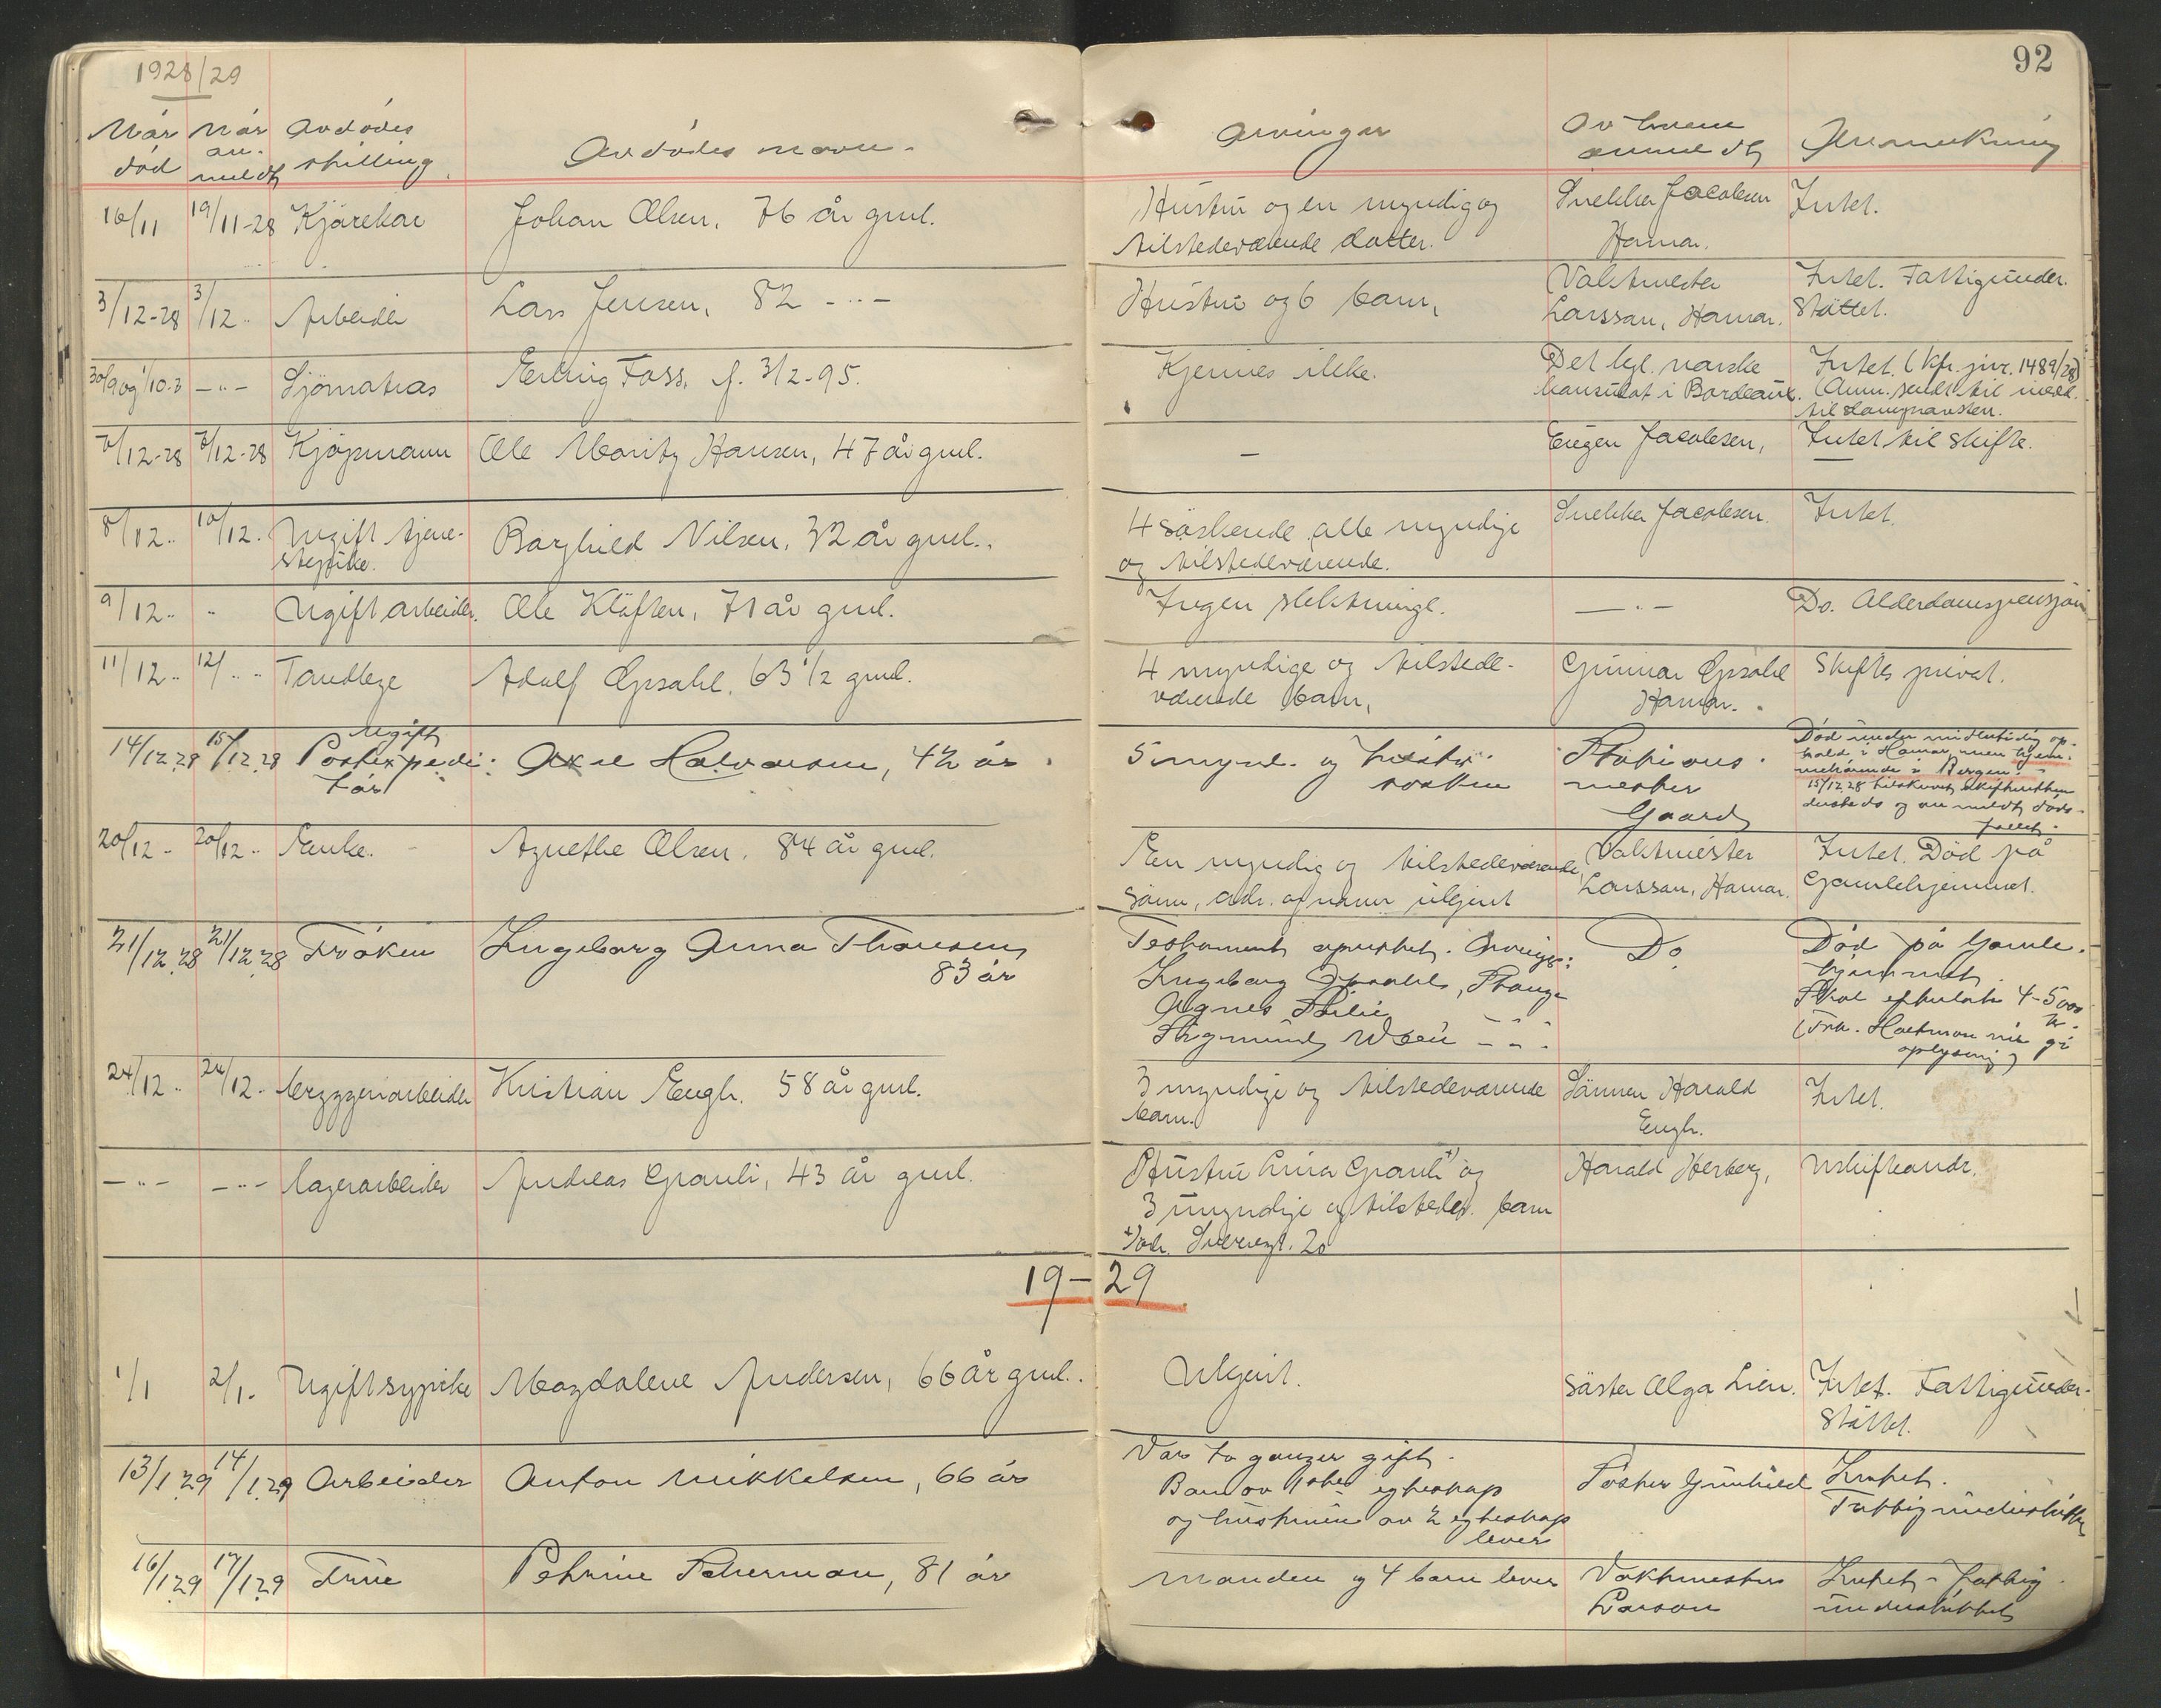 1928/29
92
Når død
Når an-meldt
Avdødes stilling
Avdødes navn.
Arvinger
Av hvem anmeldt
Anmerkning
16/11 19/11-28 Kjørekar Johan Olsen, 76 år gml. Hustru og en myndig og Snekker Jacobsen Intet.
tilstedeværende datter. Hamar.
3/12-28 3/12 .. Arbeider Lars Jensen, 82 -..- Hustru og 6 barn, Vaktmester Intet. Fattigunder-
Larssan, Hamar. støttet.
30/9 og 1/10. -..- Sjömatros Erling Foss, f. 3/2-95. Kjennes ikke. Det kgl. norske Intet. (Kfr. jnr. 1489/28)
konsulat i Bordeaux. (Anm. sendt til
til
7/12-28 7/12-28 Kjöpmann Ole Moritz Hansen, 47 år gml. – Eugen Jacobsen, Intet til skifte.
8/12 .. 10/12 . Ugift tjene- Borghild Nilsen, 32 år gml. 4 söskende, alle myndige Snekker Jacobsen. Intet.
stepike. og tilstedeværende.
9/12 .. " Ugift arbeider. Ole Kløften, 71 år gml. Ingen slektninge. -..- Do. Alderdomspensjon
11/12 .. 12/ .. Tandlege Adolf Opsahl, 63 1/2 gml. 4 myndige og tilstede- Gunnar Opsahl Skiftes privat.
værende barn, Hamar.
14/12 28 15/12 28 Ugift
Postexpedi- Aksel Halvorsen, 42 år. 5 mynd. og Stations- Død under midlertidig op-
tör søsken mester hold i Hamar, men hjem-
Gaard mehørende i Bergen.
15/12 28 tilskrevet skifteretten
dersteds og anmeldt døds-
fallet.
20/12 - 20/12 .. Enke. Agnethe Olsen, 84 år gml. En myndig og tilstedeværende Vaktmester Intet. Död på
sönn, adr. og navn ukjent Larssan, Hamar. Gamlehjemmet.
21/12 28 21/12 28 Frøken Ingeborg Anna Thoresen, Testament oprettet. Arvinger: Do. Død på Gamle-
83 år Ingeborg Opsahl, Stange hjemmet.
Agnes Skal efterlate 4-5000
Sigmund -..- kr.
(Frk. gi
oplysning)
24/12 .. 24/12 . bryggeriarbeider Kristian Engh. 58 år gml. 3 myndige og tilstedeværende Sönnen Harald Intet.
barn. Engh.
-..- -..- lagerarbeider Andreas Granli, 43 år gml. Hustru Anna Granli x) og Harald Herberg, Uskifteandr.
3 umyndige og tilstedev. barn
x) adr. 20
19 – 29
1/1 2/1. Ugift sypike Magdalene Andersen, 66 år gml. Ukjent. söster Olga Lien. Intet. Fattigunder-
støttet.
13/1 29 14/1 29 Arbeider Anton Mikkelsen, 66 år Var to ganger gift. Søster Gunhild Intet.
Barn av 1ste egteskap Fattigunderstøttet
og hustruen av 2 egteskap
lever
16/1 29 17/1 29 Frue Petrine Petterman, 81 år Manden og 4 barn lever Vaktmester Intet – fattig-
Larson understøttet